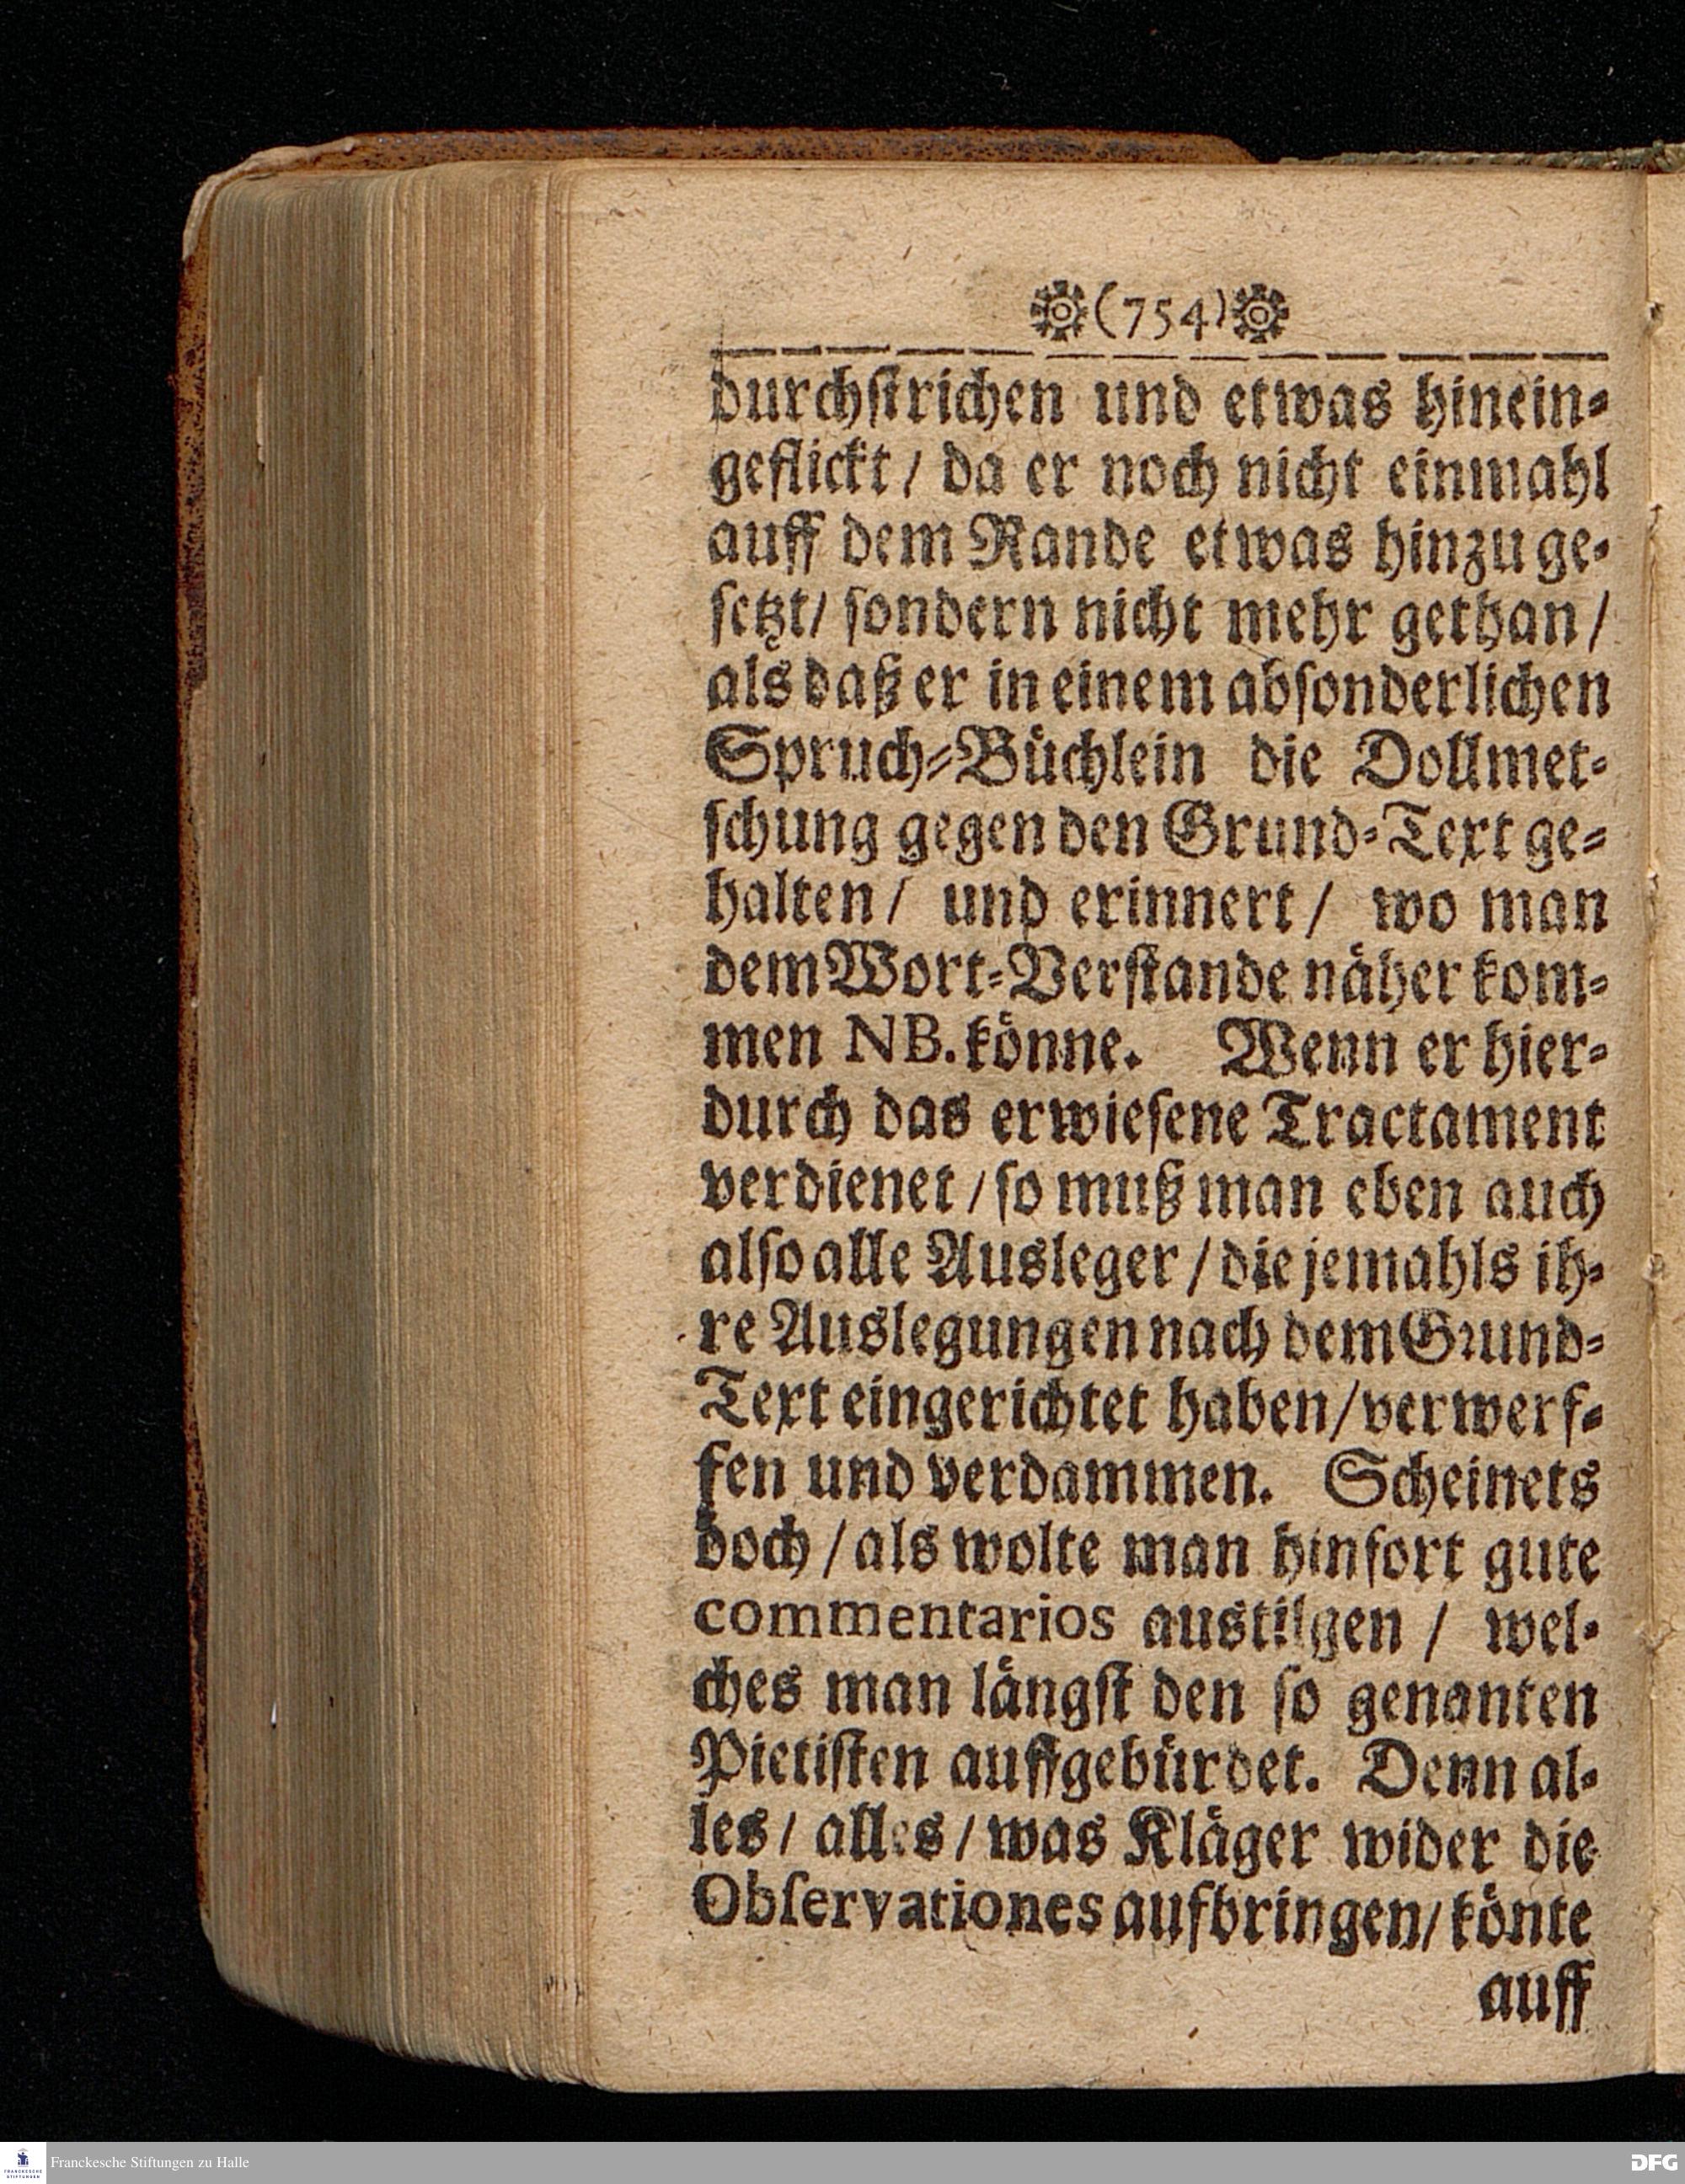 (754)
durchſtrichen und etwas hinein⸗
geflickt / da er noch nicht einmahl
auff dem Rande etwas hinzu ge⸗
ſetzt / ſondern nicht mehr gethan /
als daß er in einem abſonderlichen
Spruch⸗Büchlein die Dollmet⸗
ſchung gegen den Grund⸗Text ge⸗
halten / und erinnert / wo man
dem Wort⸗Verſtande näher kom⸗
men NB. könne. Wenn er hier⸗
durch das erwieſene Tractament
verdienet / ſo muß man eben auch
alſo alle Ausleger / die jemahls ih⸗
re Auslegungen nach dem Grund⸗
Text eingerichtet haben / verwerf⸗
fen und verdammen. Scheinets
doch / als wolte man hinfort gute
commentarios austilgen / wel⸗
ches man längſt den ſo genanten
Pietiſten auffgebürdet. Denn al⸗
les / alles / was Kläger wider die
Obſervationes aufbringen / könte
auff
FRANCKESCHE
STIFTUNGEN
Franckesche Stiftungen zu Halle
DFG